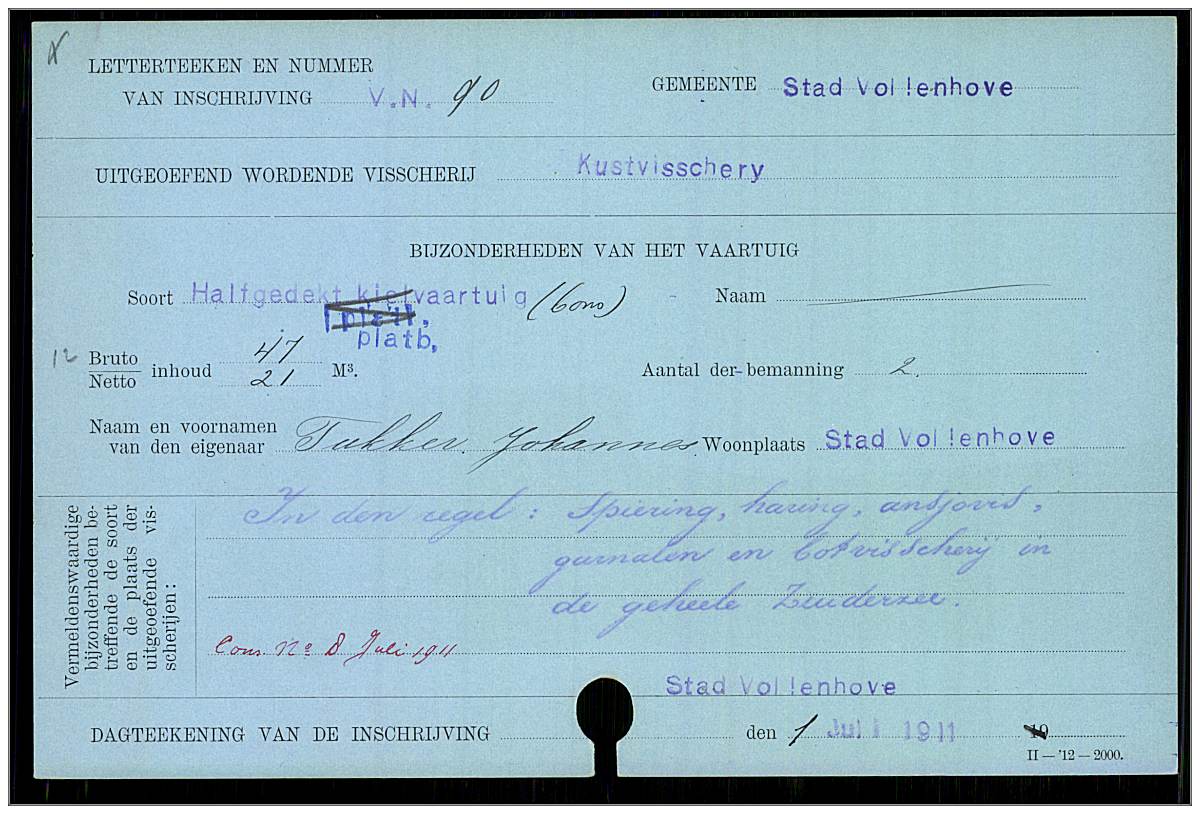 LETTERTEEKEN EN NUMMER
VAN INSCHRIJVING V.N. 90
GEMEENTE Stad Vollenhove
UITGEOEFEND WORDENDE VISSCHERIJ Kustvisschery
BIJZONDERHEDEN VAN HET VAARTUIG
Soort Halfgedekt kielvaartuig (Cons) Naam
platb,
12 Bruto 47
Netto inhoud 21 M³. Aantal der bemanning 2.
Naam en voornamen
van den eigenaar Tukker. Johannes. Woonplaats Stad Vollenhove
Vermeldenswaardige
bijzonderheden be-
treffende de soort
en de plaats der
uitgeoefende vis-
scherijen:
In den regel: Spiering, haring, ansjovis,
garnalen en botvisscherij in
de geheele Zuiderzee.
Cons. No 8 Juli 1911
Stad Vollenhove
DAGTEEKENING VAN DE INSCHRIJVING den 1 Juli 1911 19
II — '12 — 2000.